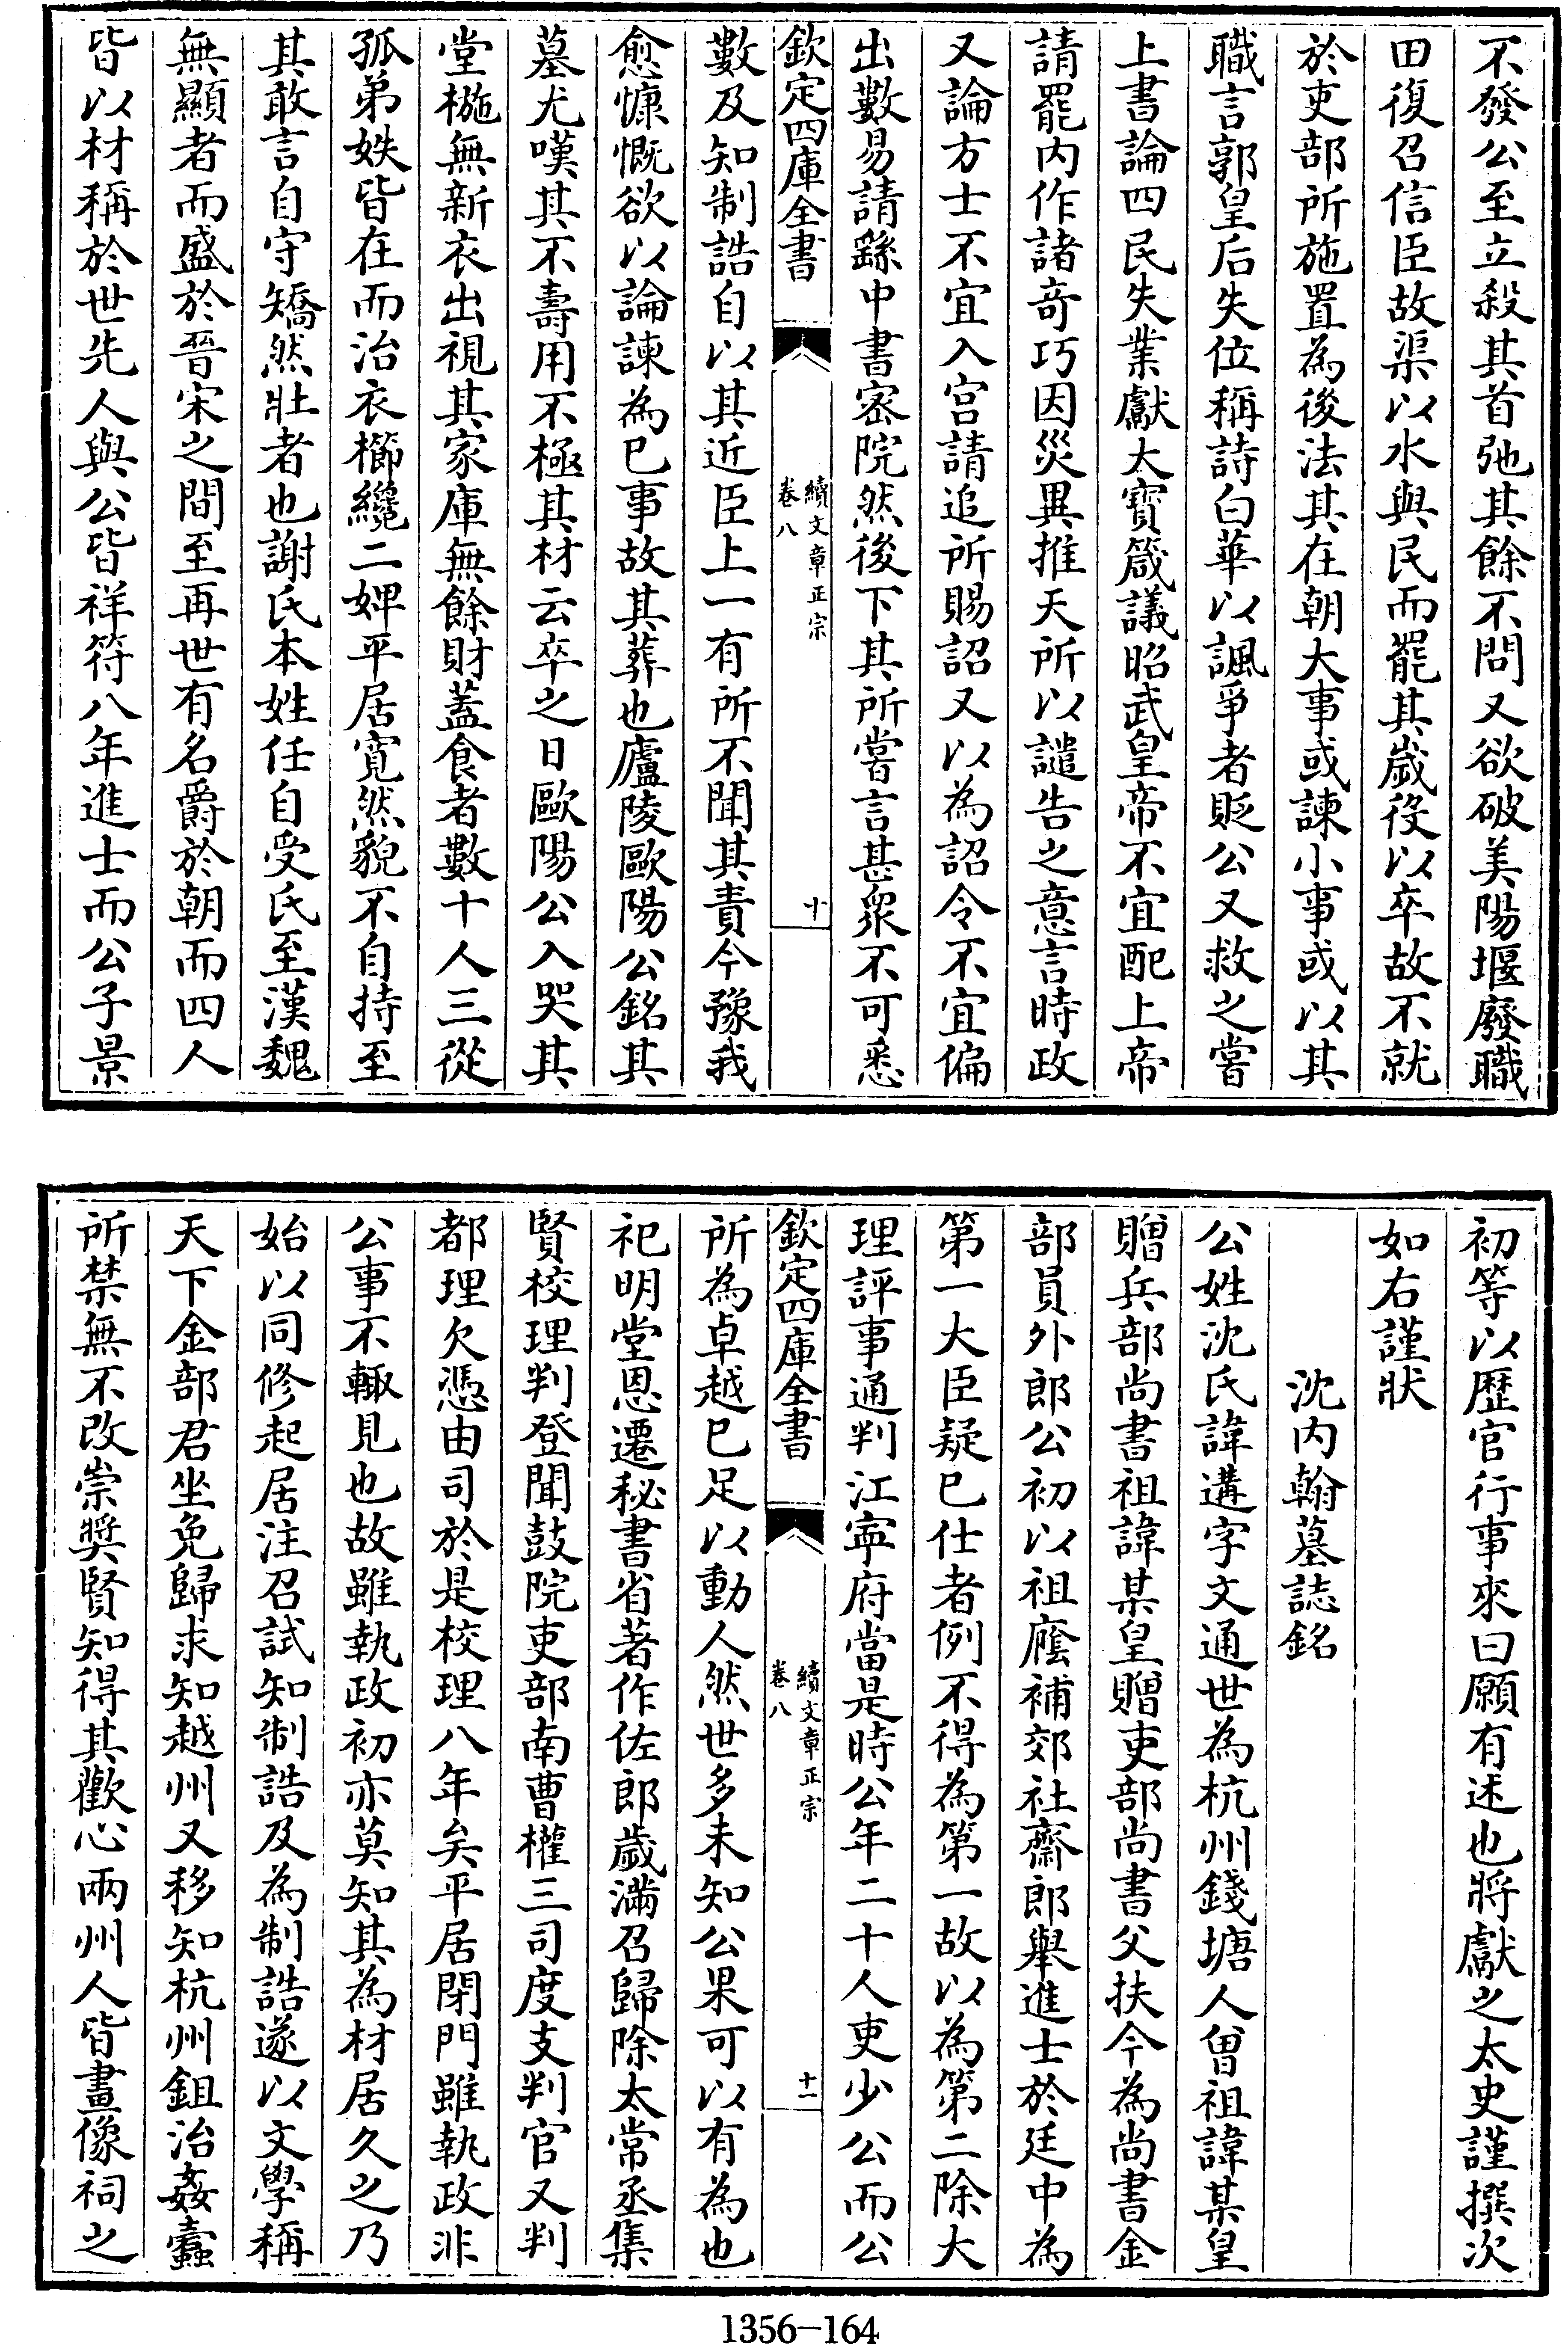 不發公至立殺其首弛其餘不問又欲破美陽堰廢職
田復召信臣故渠以水與民而罷其歲役以卒故不就
於吏部所施置為後法其在朝大事或諫小事或以其
職言郭皇后失位稱詩白華以諷爭者貶公又救之嘗
上書論四民失業獻大寳箴議昭武皇帝不宜配上帝
請罷内作諸竒巧因災異推天所以譴告之意言時政
又論方士不宜入宫請追所賜詔又以為詔令不宜偏
出數易請繇中書密院然後下其所嘗言甚衆不可悉
欽定四庫全書
續文章正宗
卷八
十
數及知制誥自以其近臣上一有所不聞其責今豫我
愈慷慨欲以論諫為已事故其葬也廬陵歐陽公銘其
墓尤嘆其不壽用不極其材云卒之日歐陽公入哭其
堂椸無新衣出視其家庫無餘財蓋食者數十人三從
孤弟姪皆在而治衣櫛纔二婢平居寛然貌不自持至
其敢言自守矯然壯者也謝氏本姓任自受氏至漢魏
無顯者而盛於晉宋之間至再世有名爵於朝而四人
皆以材稱於世先人與公皆祥符八年進士而公子景
初等以歴官行事來曰願有述也將獻之太史謹撰次
如右謹狀
沈内翰墓誌銘
公姓沈氏諱遘字文通世為杭州錢塘人曾祖諱某皇
贈兵部尚書祖諱某皇贈吏部尚書父扶今為尚書金
部員外郎公初以祖廕補郊社齋郎舉進士於廷中為
第一大臣疑已仕者例不得為第一故以為第二除大
理評事通判江寜府當是時公年二十人吏少公而公
欽定四庫全書
續文章正宗
卷八
十一
所為卓越已足以動人然世多未知公果可以有為也
祀明堂恩遷秘書省著作佐郎歲滿召歸除太常丞集
賢校理判登聞鼓院吏部南曹權三司度支判官又判
都理欠憑由司於是校理八年矣平居閉門雖執政非
公事不輙見也故雖執政初亦莫知其為材居久之乃
始以同修起居注召試知制誥及為制誥遂以文學稱
天下金部君坐免歸求知越州又移知杭州鉏治姦蠧
所禁無不改崇奬賢知得其歡心兩州人皆畫像祠之
1356-164